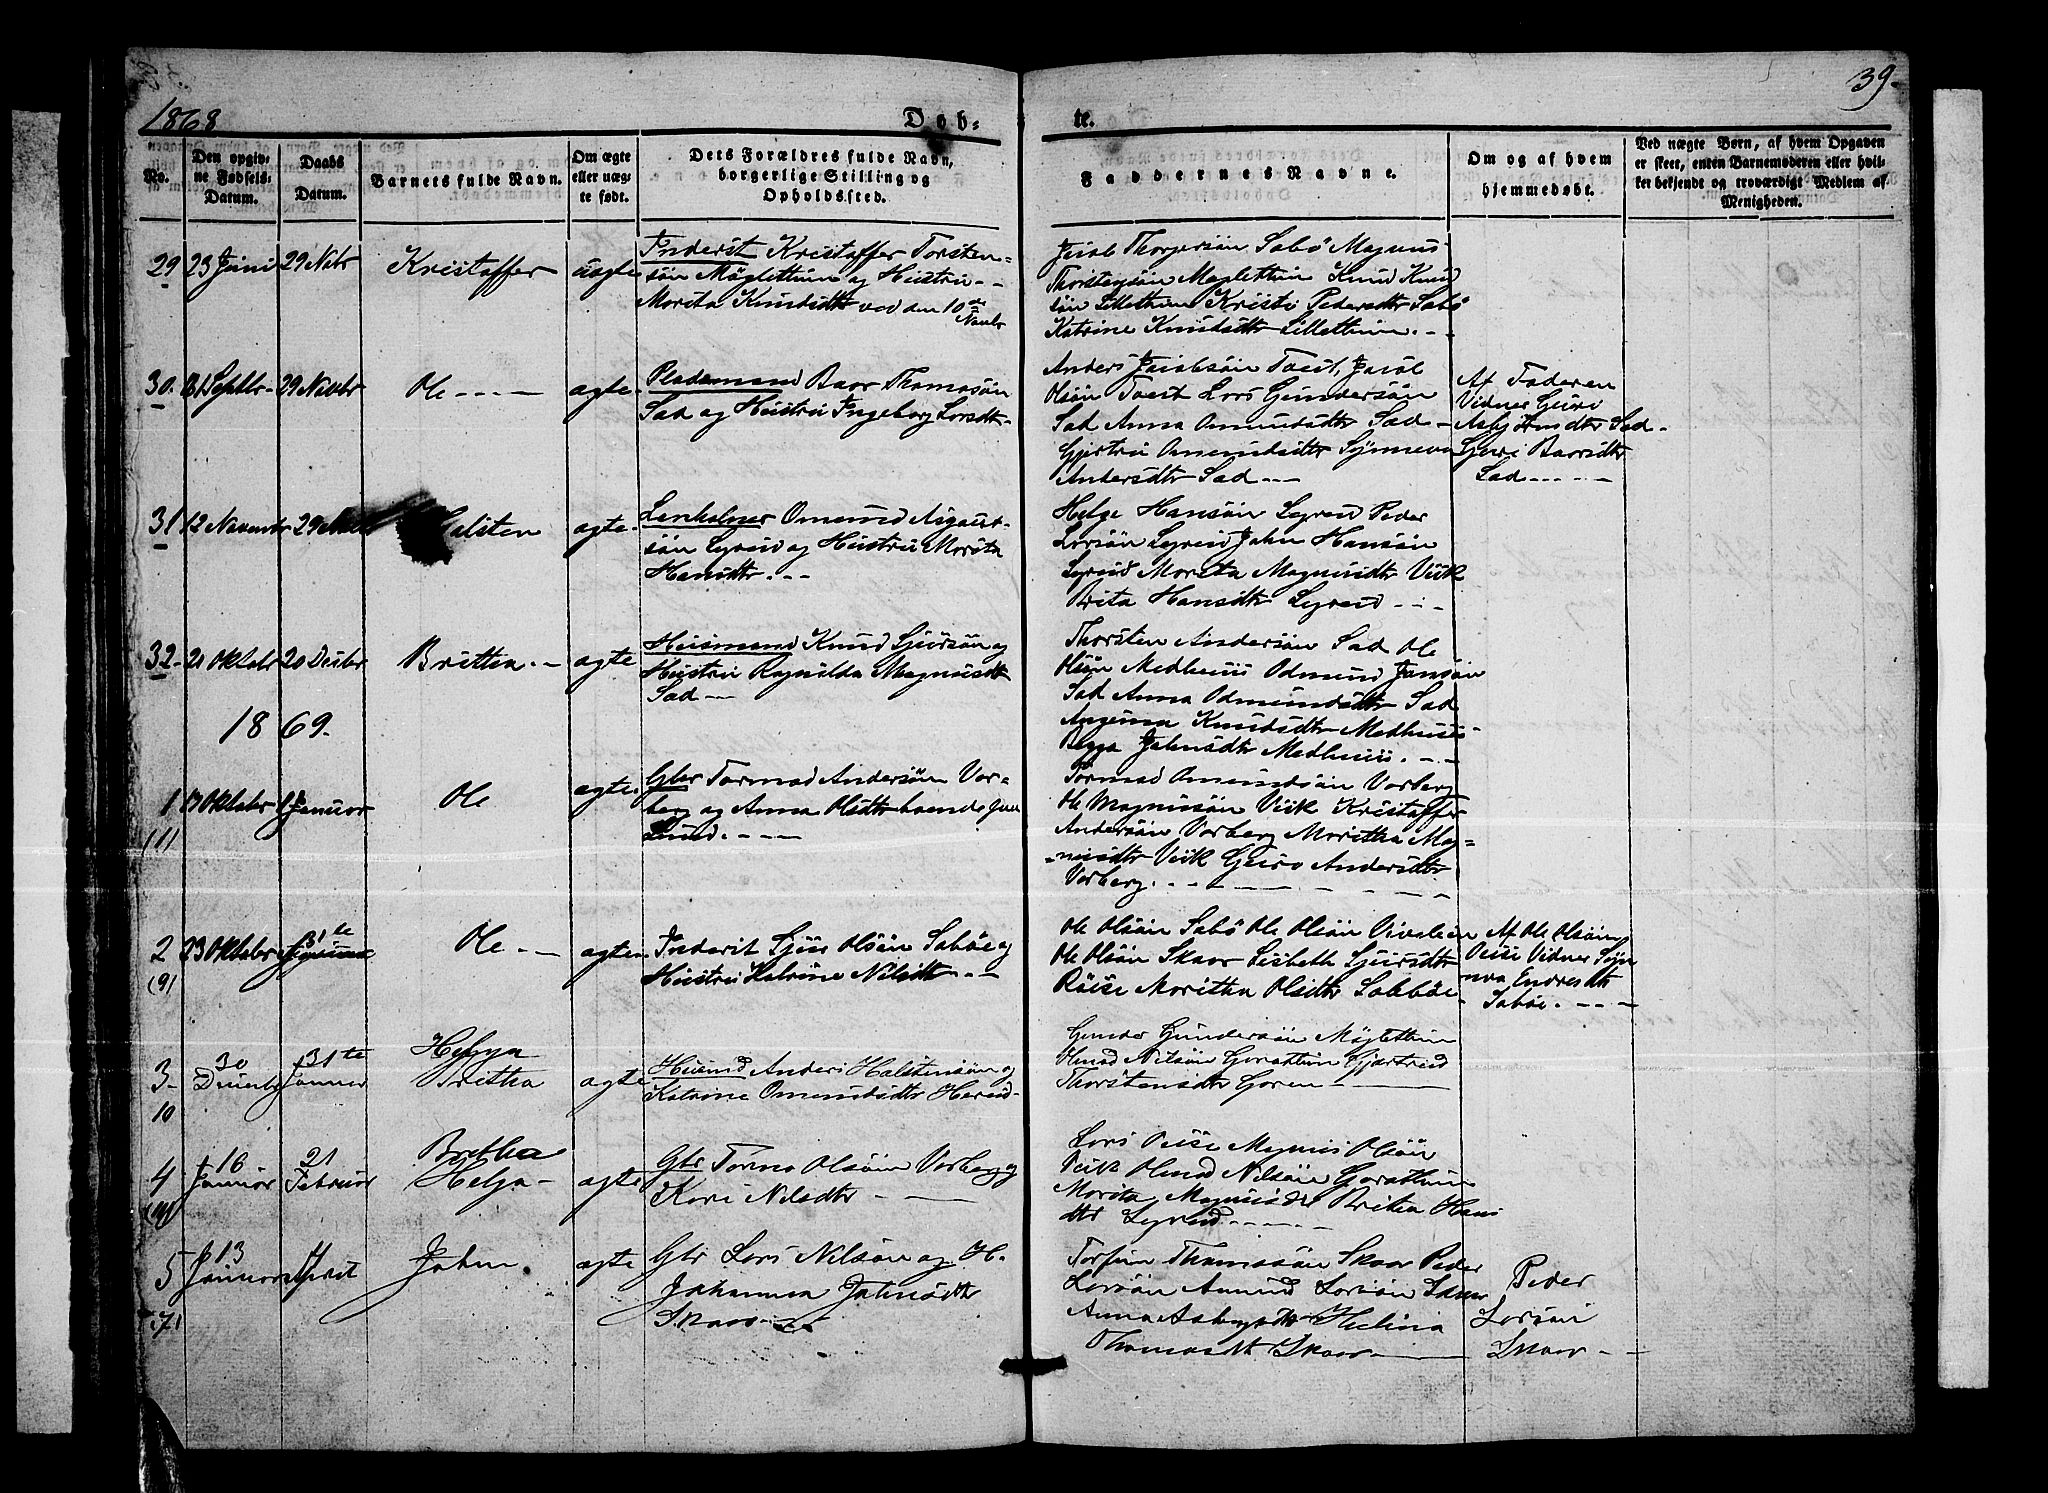 1868
Døb-
te.
39.
No.
Den opgiv-
ne Fødsels-
Datum.
Daabs
Datum.
Barnets fulde Navn.
Om ægte
eller uæg-
te født.
Dets Forældres fulde Navn,
borgerlige Stilling og
Opholdssted.
Faddernes Navne.
Om og af hvem
hjemmedøbt.
Ved uægte Børn, af hvem Opgaven
er skeet, enten Barnemoderen eller hvil-
ket bekjendt og troværdigt Medlem af
Menigheden.
29
23 Juni
29 Nvbr
Kristoffer
uagte
Inderst Kristoffer Torsten-
sön Möglettun og Hustru
Morita Knudsdtr ved den 10de
Novbr
Jacob Thorgersön Sabö Magnus
Thorstensön Maglettun Knud Knud
sön Lillettun Kristi Pedersdtr Sabö
Katrine Knudsdtr Lillettun
30.
Septbr
29 Novbr
Ole
agte
Pladsmand Baar Thomasön
Sad og Hustru Ingeborg Larsdtr
Anders Jacobsön Tveit, Jacob
Olsön Tveit Lars Gundersön
Sad Anna Omundsdtr Sad
Gjertru Omundsdtr Synneva
Andersdtr Sad
Af Faderen
Vidner Guri
Asbjörnsdtr Sad
Guri Baarsdtr
Sad
31
12 Novembr
29
Halsten
agte
Omund Asgaut-
sön Legreid og Hustru Morita
Hansdtr
Helge Hansön Legreid Peder
Larsön Legreid Jahn Hansön
Legreid Morita Magnusdtr Viik
Brita Hansdtr Legreid
32
21 Oktobr
20 Desbr
Britta
agte
Huusmand Knud Sjursön og
Hustru Ragnilda Magnusdtr
Sad
Thorsten Andersön Sad Ole
Olsön Medhuus Odmund Jansön
Sad Anna Odmundsdtr Sad
Angunna Knudsdtr Medhuus
Jahnsdtr Medhuus
1869.
1
(1)
Oktobr
1 Januar
Ole
agte
Gbr Tormod Andersön Vor-
berg og Anna Olsdtr
Lund
Tormod Omundsön Vorberg
Ole Magnusön Viik Kristoffer
Andersön Vorberg Moritha Mag-
nusdtr Viik Guro Andersdtr
Vorberg.
2
(9)
23 Oktobr
31te
Januar
Ole
agte
Inderst Sjur Olsön Saböe og
Hustru Katrine Nilsdtr
Ole Olsön Sabö Ole Olsön
Ole Olsön Skaar Lisbeth Sjursdtr
Röise Moritha Olsdtr Sabböe
Af Ole Olsön
Vidner Syn
nva Endresdtr
Saböe.
3
10
30
Desembr
31te
Januar
Helga
Britha
agte
Huusmd Anders Halstensön og
Katrine Omundsdtr Hereid
Gunder Gundersön Möglettun
Olmod Nilsön Garattun Gjertrud
Thorstensdtr Garen
4
16
Januar
21
Februar
Britha
Helga
agte
Gbr Tormo Olsön Vorberg og
Kari Nilsdtr
Lars Magnus Olsön
Viik Olmod Nilsön Garattun
Morita Magnusdtr Britha Hans
dtr Legreid
5
13
Januar
April
Jahn
agte
Gbr Lars Nilsön og H.
Johanna Jahnsdtr
Skaar
Torfin Thomasön Skaar Peder
Larsön Amund Larsön
Anna Helina
Thomasdtr Skaar
Peder
Larsön
Skaar